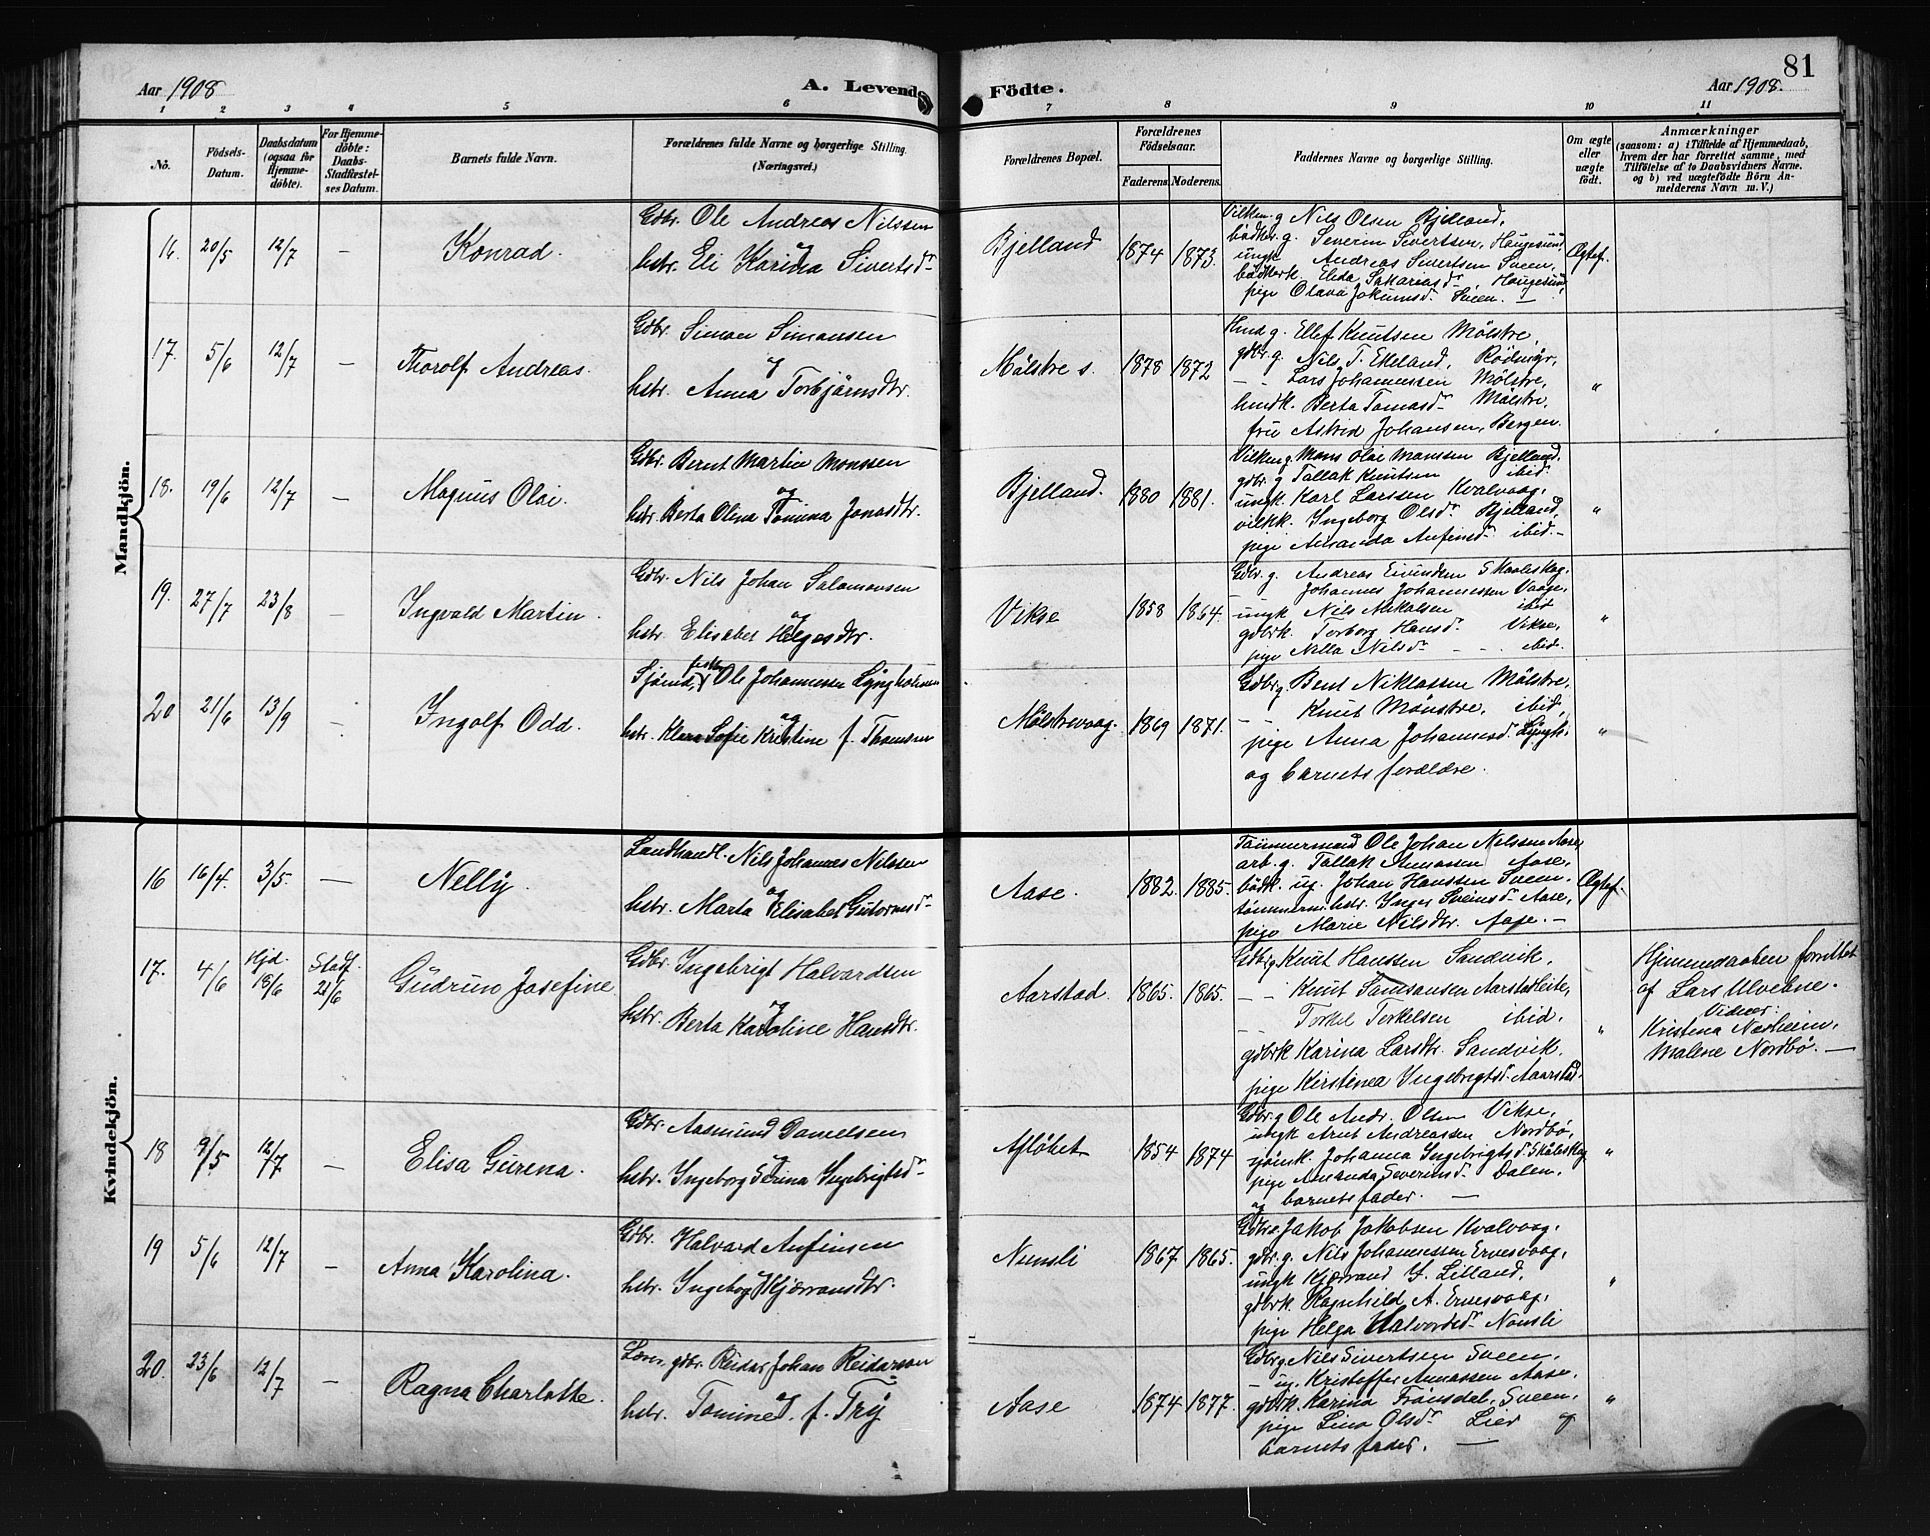 Aar 1908 A. Levende Födte. Aar 1908. 81
1 2 3 4 5 6 7 8 9 10 11
No. Födsels-Datum. Daabsdatum (ogsaa for Hjemmedöbte). For Hjemmedöbte: Daabs-Stadfæstelses Datum. Barnets fulde Navn. Forældrenes fulde Navne og borgerlige Stilling. (Næringsvei.) Forældrenes Bopæl. Forældrenes Födselsaar. Faderens. Moderens. Faddernes Navne og borgerlige Stilling. Om ægte eller uægte födt. Anmærkninger (saasom: a) i Tilfælde af Hjemmedaab, hvem der har forrettet samme, med Tilföielse af to Daabsvidners Navne. og b) ved uægtefödte Börn Anmelderens Navn m. V.)
Mandkjön.
16. 20/5 12/7 — Konrad. Gdbr. Ole Andreas Nilssen
og
hstr. Eli Karina Sivertsdr.
Bjelland 1874 1873.
Vilken. g. Nils Olsen Bjelland,
bödker. g. Severin Sivertsen, Haugesund
ungk Andreas Sivertsen Sveen,
bödkerk. Elida Sakariasdr., Haugesund,
pige Olava Jokumsdr. Sveen. —
Ægtef.
17. 5/6 12/7 — Thorolf Andreas. Gdbr. Simon Simonsen
og
hstr. Anna Torbjörnsdtr.
Mölstre s. 1878 1872
Hmd g. Ellef Knutsen Mölstre,
gdbr. g. Nils T. Ekeland, Rödmyr,
— - Lars Johannessen Mölstre,
hmdk. Berta Tomasdr. Mölstre,
fru Astrid Johansen, Bergen.
"
18. 19/6 12/7 — Magnus Olai. Gdbr. Bernt Martin Monssen
og
hstr. Berta Olina Tomina Jonasdtr.
Bjelland. 1880 1881.
Vilken g. Mons Olai Monssen Bjelland,
gdbr. g Tallak Knutsen ibid.
ungk. Karl Larsen Kvalvaag,
vilkk. Ingeborg Olsdr. Bjelland,
pige Amanda Anfinsdr. ibid. —
"
19. 27/7 23/8 — Ingvald Martin. Gdbr. Nils Johan Salomonsen
og
hstr. Elisabet Helgesdtr.
Vikse 1858 1864.
Gdbr. g. Andreas Eivindsen Skaaleskog,
— Johannes Johannessen Vaage,
ungk Nils Mikalsen ibid
gdbrk. Torborg Hansd. Vikse,
pige Nilla Nilsdr. - - . ibid.
"
20 21/6 13/9 — Ingolf Odd. Sjömd, fisker Ole Johannessen Lyngholmen
og
hstr. Klara Sofie Kristine f. Thomsen
Mölstrevaag. 1869 1871.
Gdbr g. Bent Niklassen Mölstre,
— - Knut Mönstre, ibid,
pige Anna Johannesd. Lyngh.
og barnets forældre.
"
Kvindekjön.
16 16/4. 3/5. — Nelly. Landhandl. Nils Johannes Nilssen
og
hstr. Marta Elisabet Gutormsdr.
Aase. 1882. 1885.
Tömmermand Ole Johan Nilssen Aase,
arb. g. Tallak Aamassen Aase,
bödk. ug. Johan Hanssen Sveen,
tömmerm. hstr. Inger Sveinsdr. Aase,
pige Marie Nilsdtr. Aase. —
Ægtef.
17. 4/6 Hjd. 18/6 Stadf. 21/6 Gudrun Josefine Gdbr. Ingebrigt Halvardsen
og
hstr. Berta Karoline Hansdtr.
Aarstad. 1865. 1865.
Gdbr g Knut Hanssen Sandvik,
— - Knut Samsonsen Aarstadleite,
— Torkel Torkelsen ibid.
gdbrk Karina Larsdtr. Sandvik.
pige Kirstinea Ingebrigtsd. Aarstad.
"
Hjemmedaaben forrettet
af Lars Ulveene.
Vidner:
Kristina Nesheim,
Malene Nordbö. —
18 9/5 12/7 — Elisa Gurena. Gdbr. Aasmund Danielsen
og
hstr. Ingeborg Serina Ingebrigtsdr.
Aflöhet 1854 1874
Gdbr. g Ole Andr. Olsen Vikse,
ungk Arnt Andreassen Nordbö,
sjömk. Johanna Ingebrigtsd. Skåleskog
pige Amanda Severinsd. Dalen,
og barnets fader. —
"
19 5/6 12/7 — Anna Karolina. Gdbr. Halvard Anfinsen
og
hstr. Ingeborg Kjærransdtr.
Nonsli 1867. 1865.
Gdbr. g Jakob Jakobsen Kvalvaag,
gdbr. g. Nils Johannessen Ervesvaag,
ungk Kjærrand I. Lilland,
gdbrk. Ragnhild A. Ervesvaag,
pige Helga Halvordsdr. Nonsli
"
20. 23/6 12/7 — Ragna Charlotte. Lærer, gdbr. Reidar Johan Reidarson
og
hstr. Tomine T. f. Try
Aase 1874 1877.
Gdbr g Nils Sivertsen Sveen,
— ug. Kristoffer Aamassen Aase,
gdbrk. Karina Frönsdal, Sveen,
pige Lina Olsdr. Lier og
barnets fader. —
"